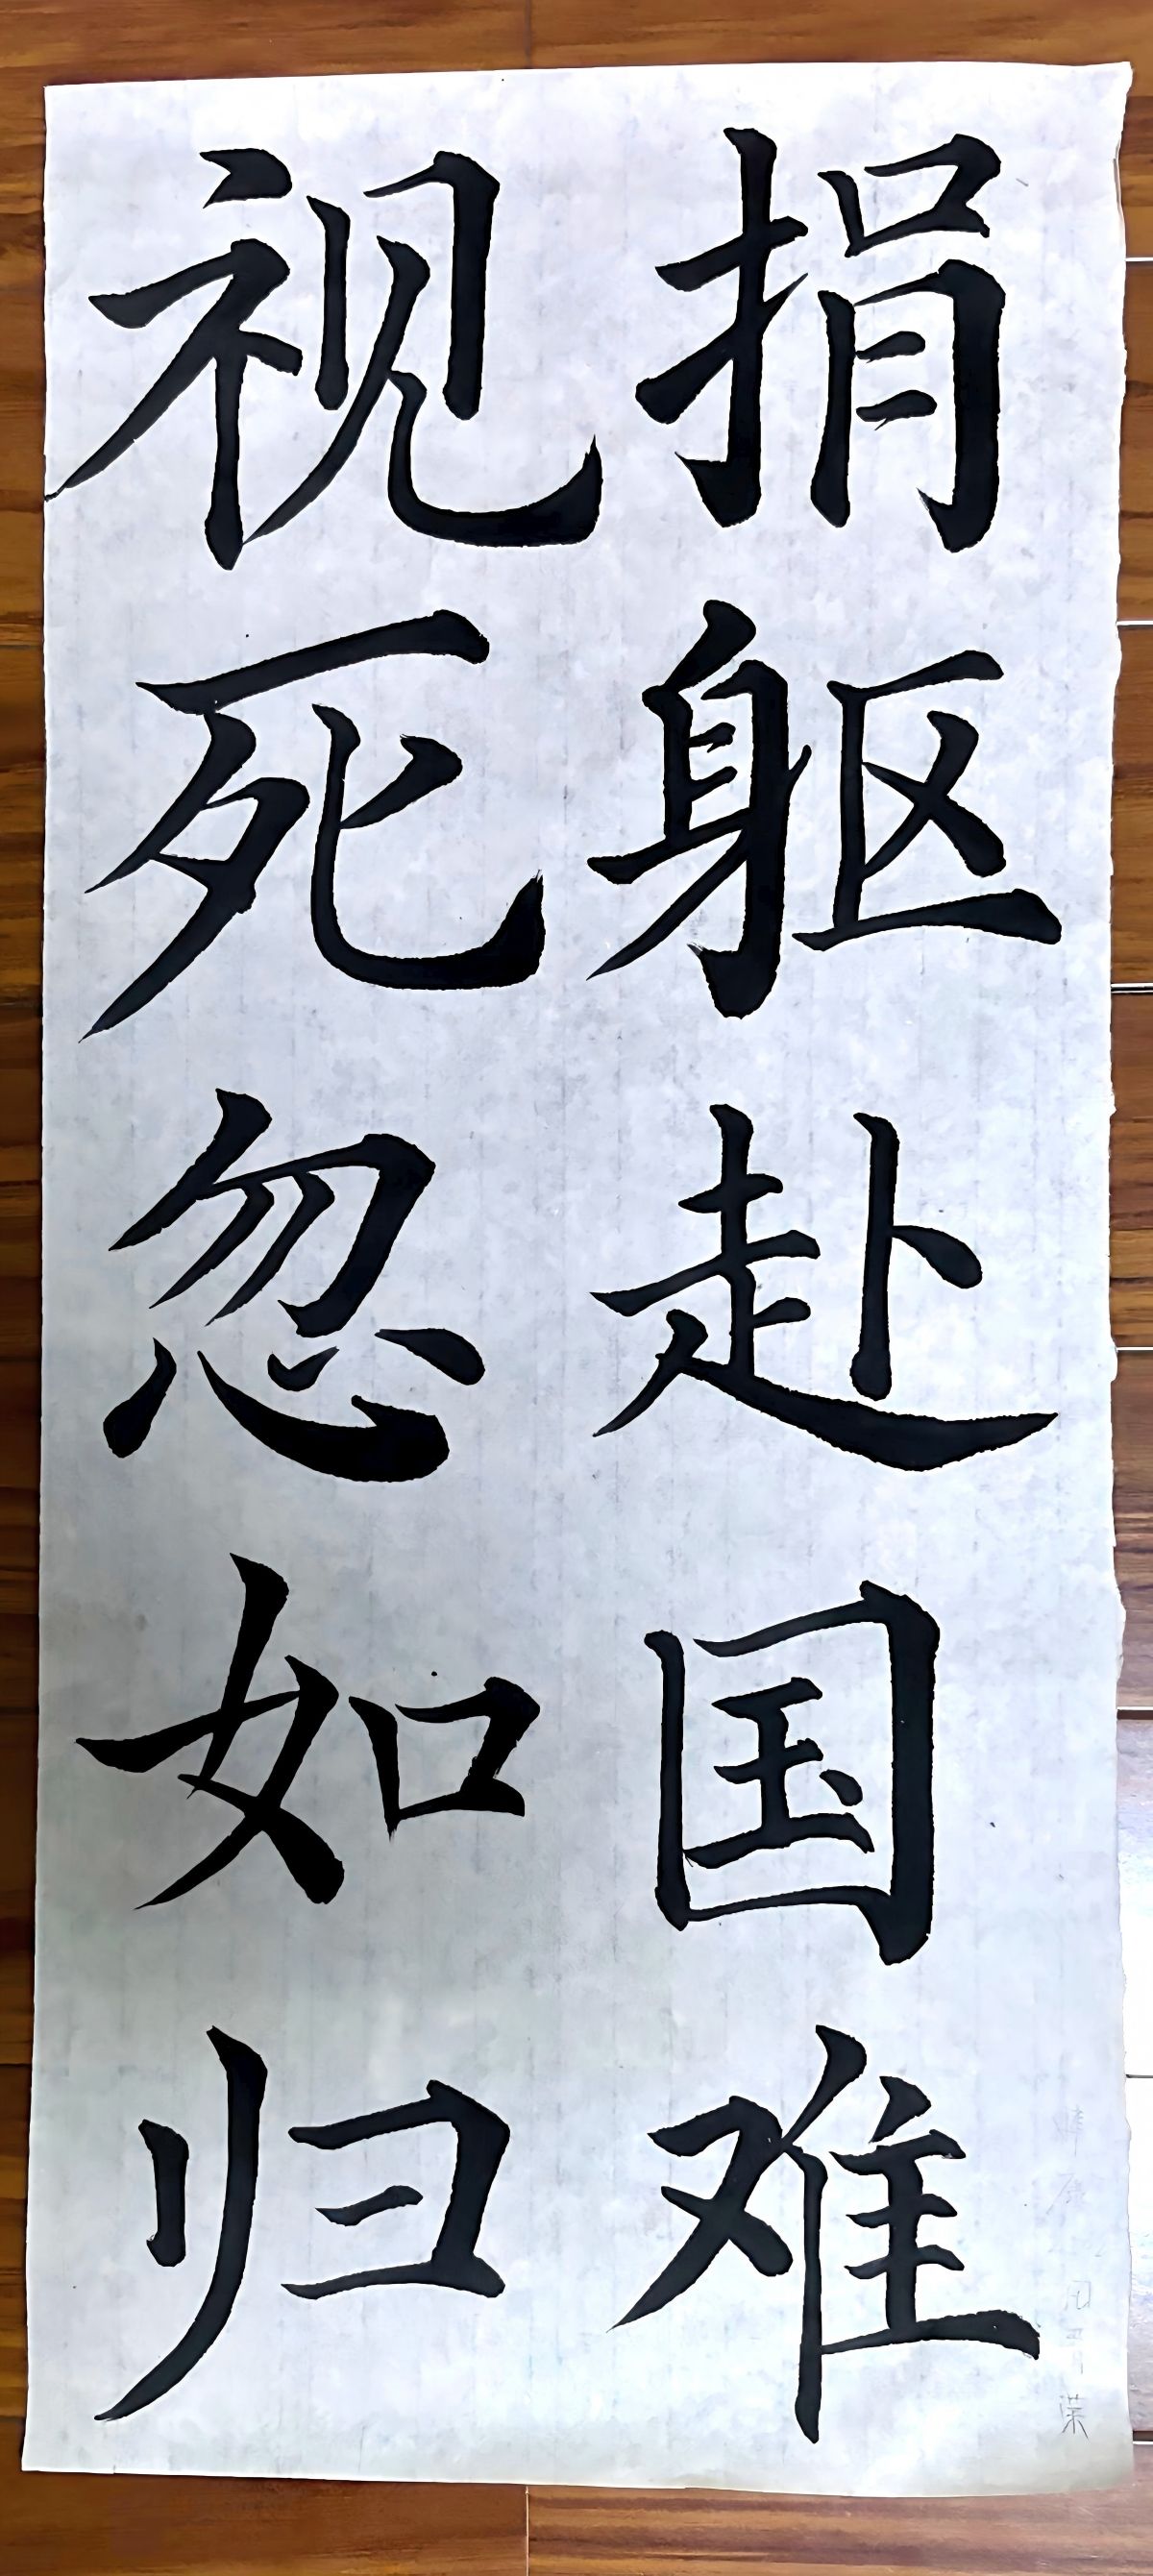 捐躯赴国难
视死忽如归